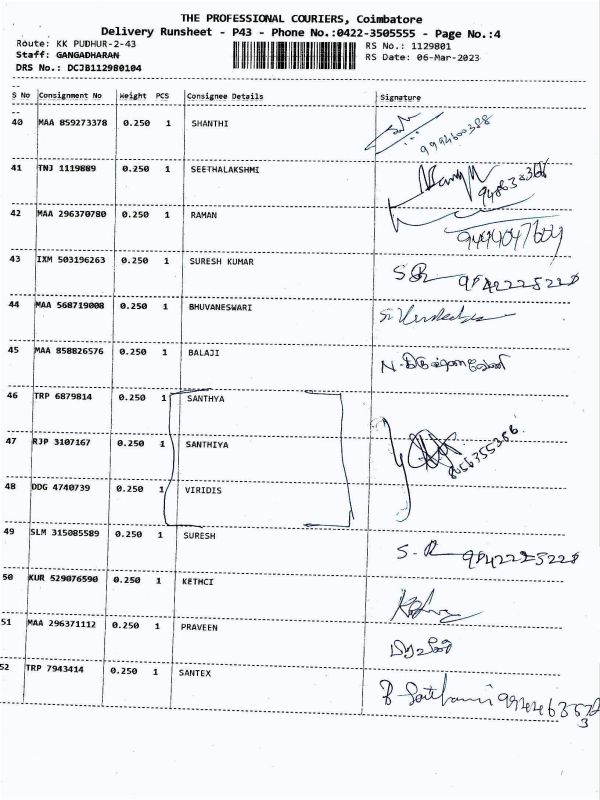 THE PROFESSIONAL COURIERS, Coimbatore
Delivery Runsheet - P43 - Phone No.:0422-3505555 - Page No.:4
Route: KK PUDHUR-2-43 RS No.: 1129801
Staff: GANGADHARAN RS Date: 06-Mar-2023
DRS No.: DCJB112980104
S No Consignment No Weight PCS Consignee Details Signature
40 MAA 859273378 0.250 1 SHANTHI 9994600388
41 TNJ 1119889 0.250 1 SEETHALAKSHMI
42 MAA 296370780 0.250 1 RAMAN
43 IXM 503196263 0.250 1 SURESH KUMAR 9842225228
44 MAA 568719008 0.250 1 BHUVANESWARI
45 MAA 858826576 0.250 1 BALAJI
46 TRP 6879814 0.250 1 SANTHYA
47 RJP 3107167 0.250 1 SANTHIYA 8056355366
48 DDG 4740739 0.250 1 VIRIDIS
49 SLM 315085589 0.250 1 SURESH S. R 9842225228
50 KUR 529076590 0.250 1 KETHCI
51 MAA 296371112 0.250 1 PRAVEEN
52 TRP 7943414 0.250 1 SANTEX